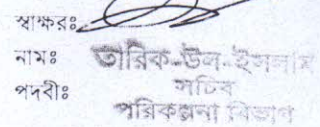 স্বাক্ষরঃ
নামঃ তারিক-উল-ইসলাম
পদবীঃ সচিব
পরিকল্পনা বিভাগ